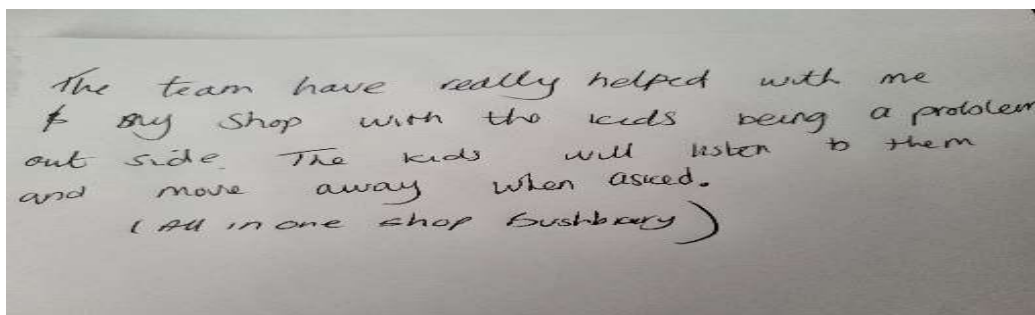 The team have really helped with me
& my shop with the kids being a problem
out side. The kids will listen to them
and move away when asked.
(All in one shop Bushbury)